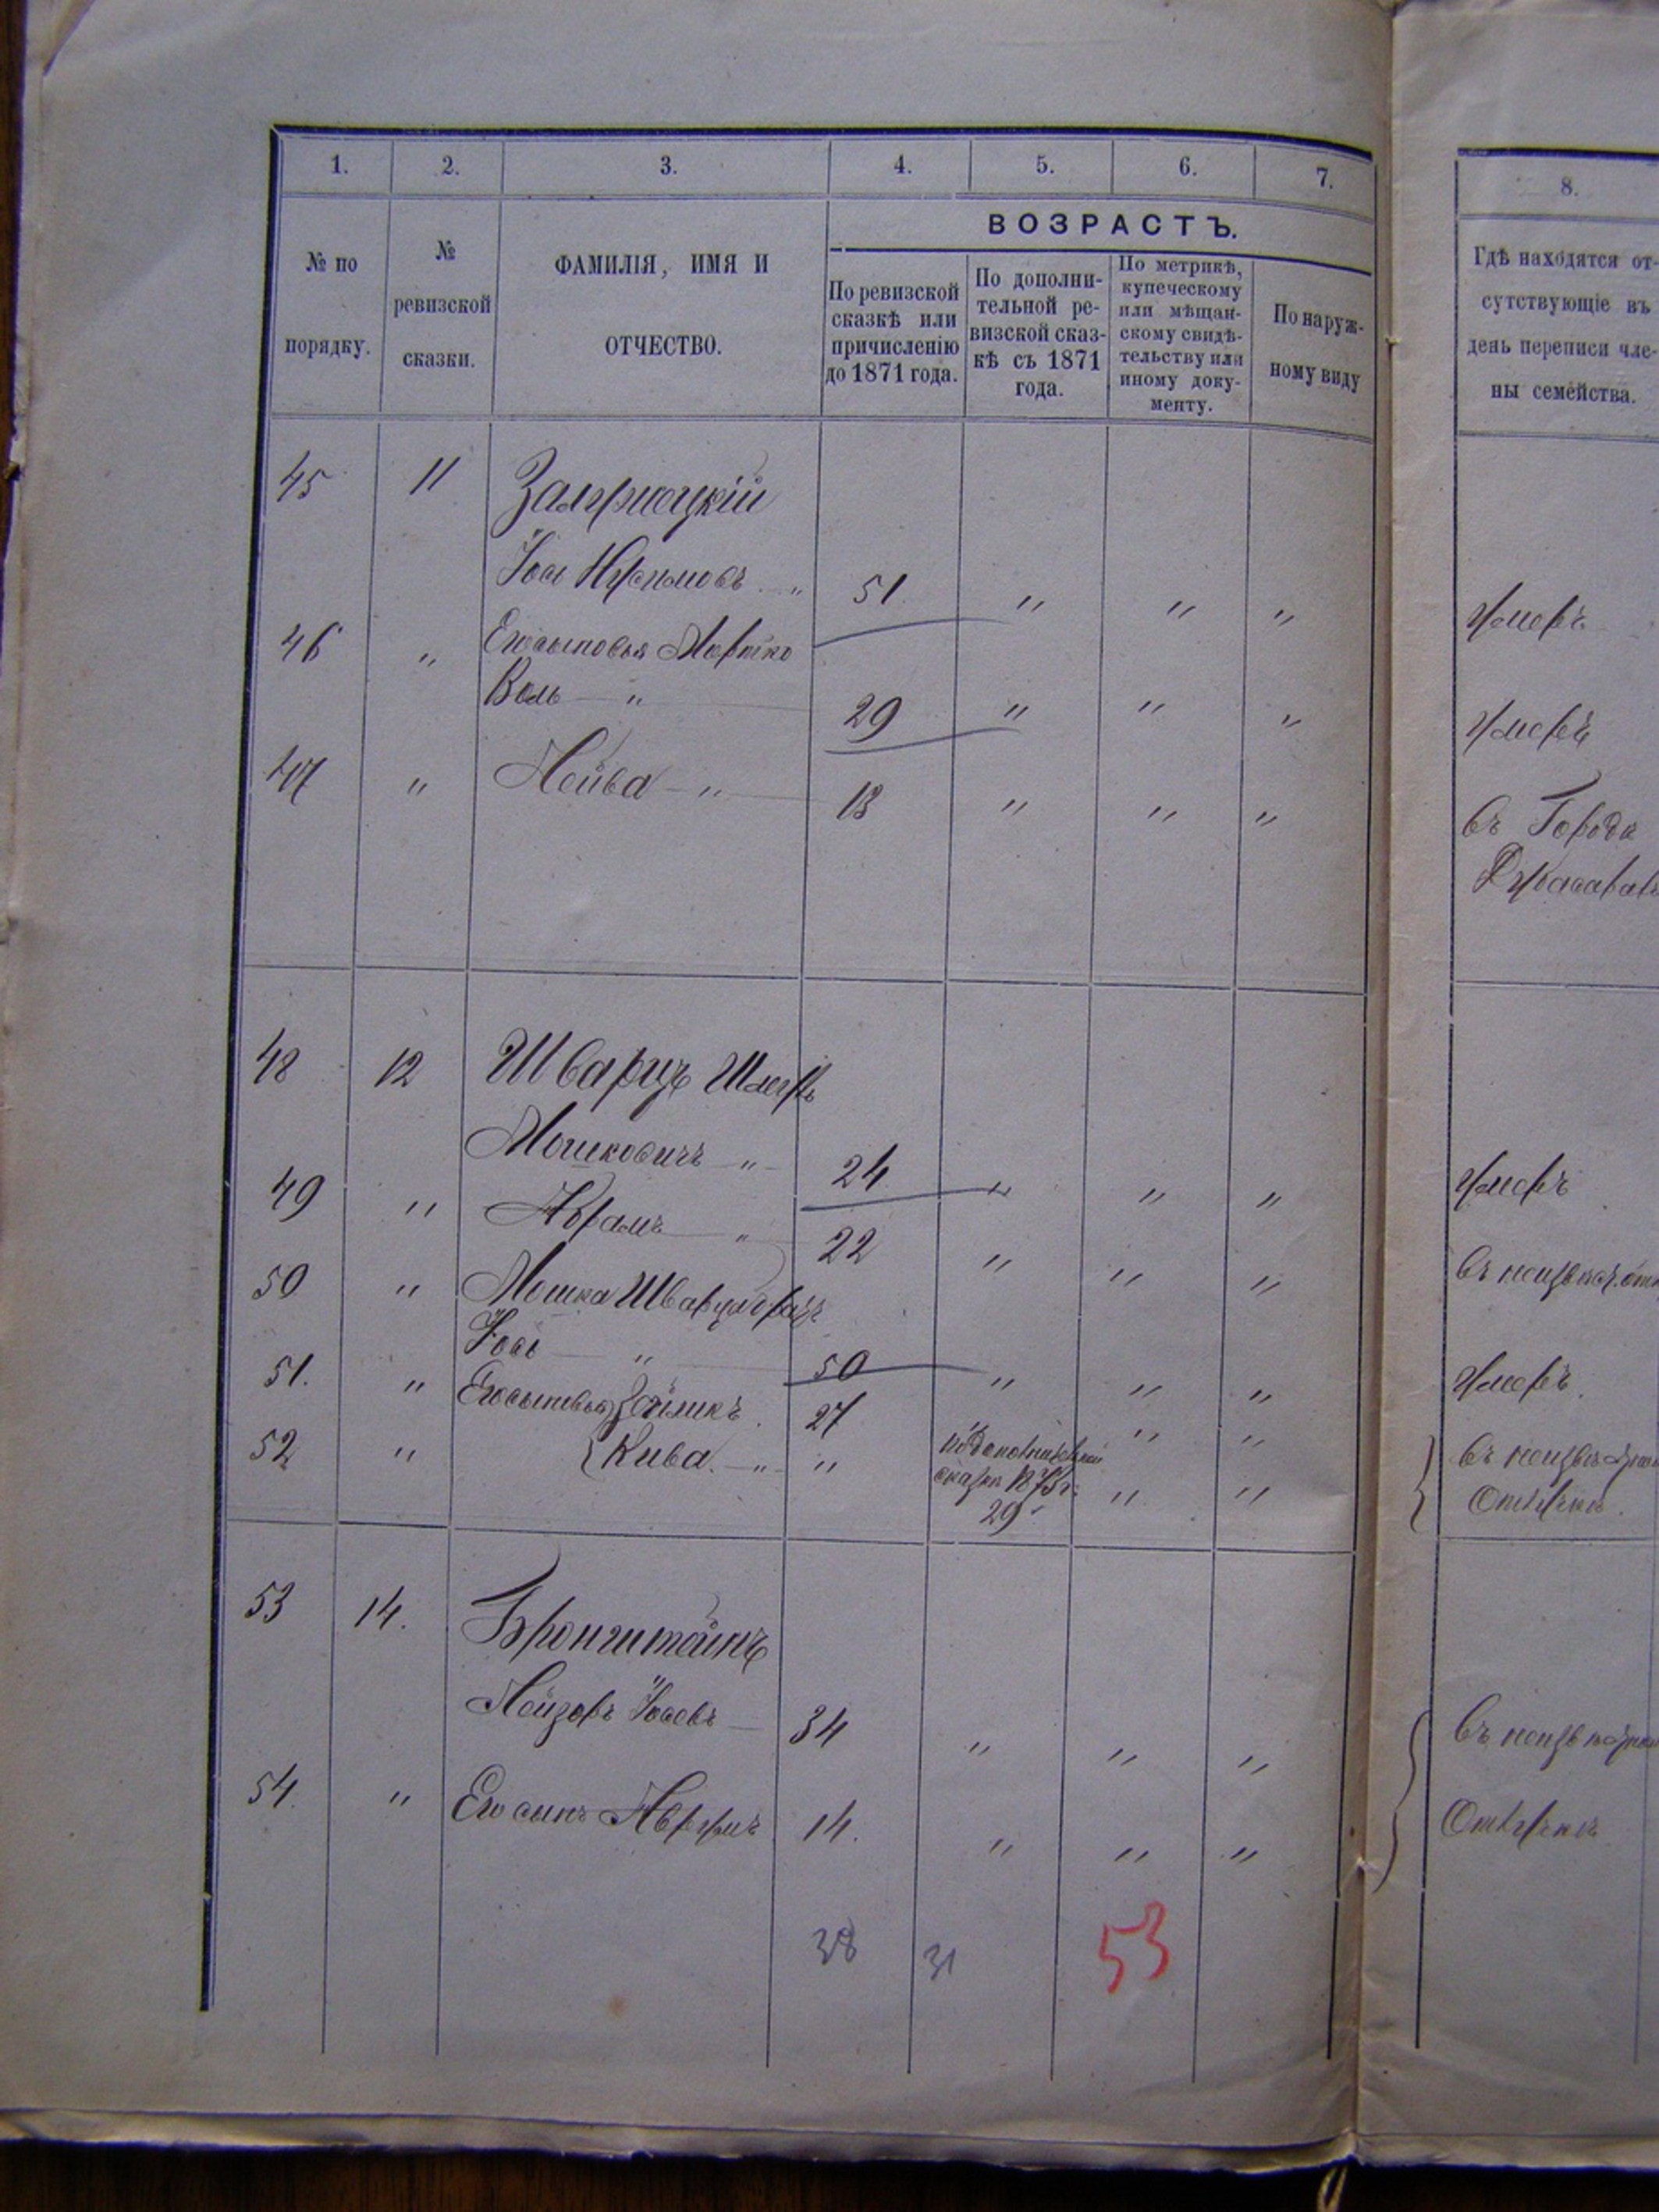 1. 2. 3. 4. 5. 6. 7. 8.
№ по порядку.
№ ревизской сказки.
ФАМИЛІЯ, ИМЯ И ОТЧЕСТВО.
ВОЗРАСТЪ.
По ревизской сказкѣ или причисленію до 1871 года.
По дополнительной ревизской сказкѣ съ 1871 года.
По метрикѣ, купеческому или мѣщанскому свидѣтельству или иному документу.
По наружному виду
Гдѣ находятся отсутствующіе въ день переписи члены семейства.
45 11
Іось 51 " " " Умеръ
46 " Его сыновья Мортко
Воль " 29 " " " Умеръ
47 " Лейба " 13 " " " Въ Города
48 12 Шварцъ
Мошковичъ " 24 " " " Умеръ
49 " Абрамъ " 22 " " "
50 " Мошка
Іось " 50 " " " Умеръ
51. " Его сыновья Зейликъ 27 " " "
52 " Кива " " сказкѣ 1875 г. 29 " "
Отлучкѣ
53 14. Бронштейнъ
Лейзоръ Іосевъ 34 " " "
54. " Его сынъ Аврумъ 14. " " " Отлучкѣ
38 31 53